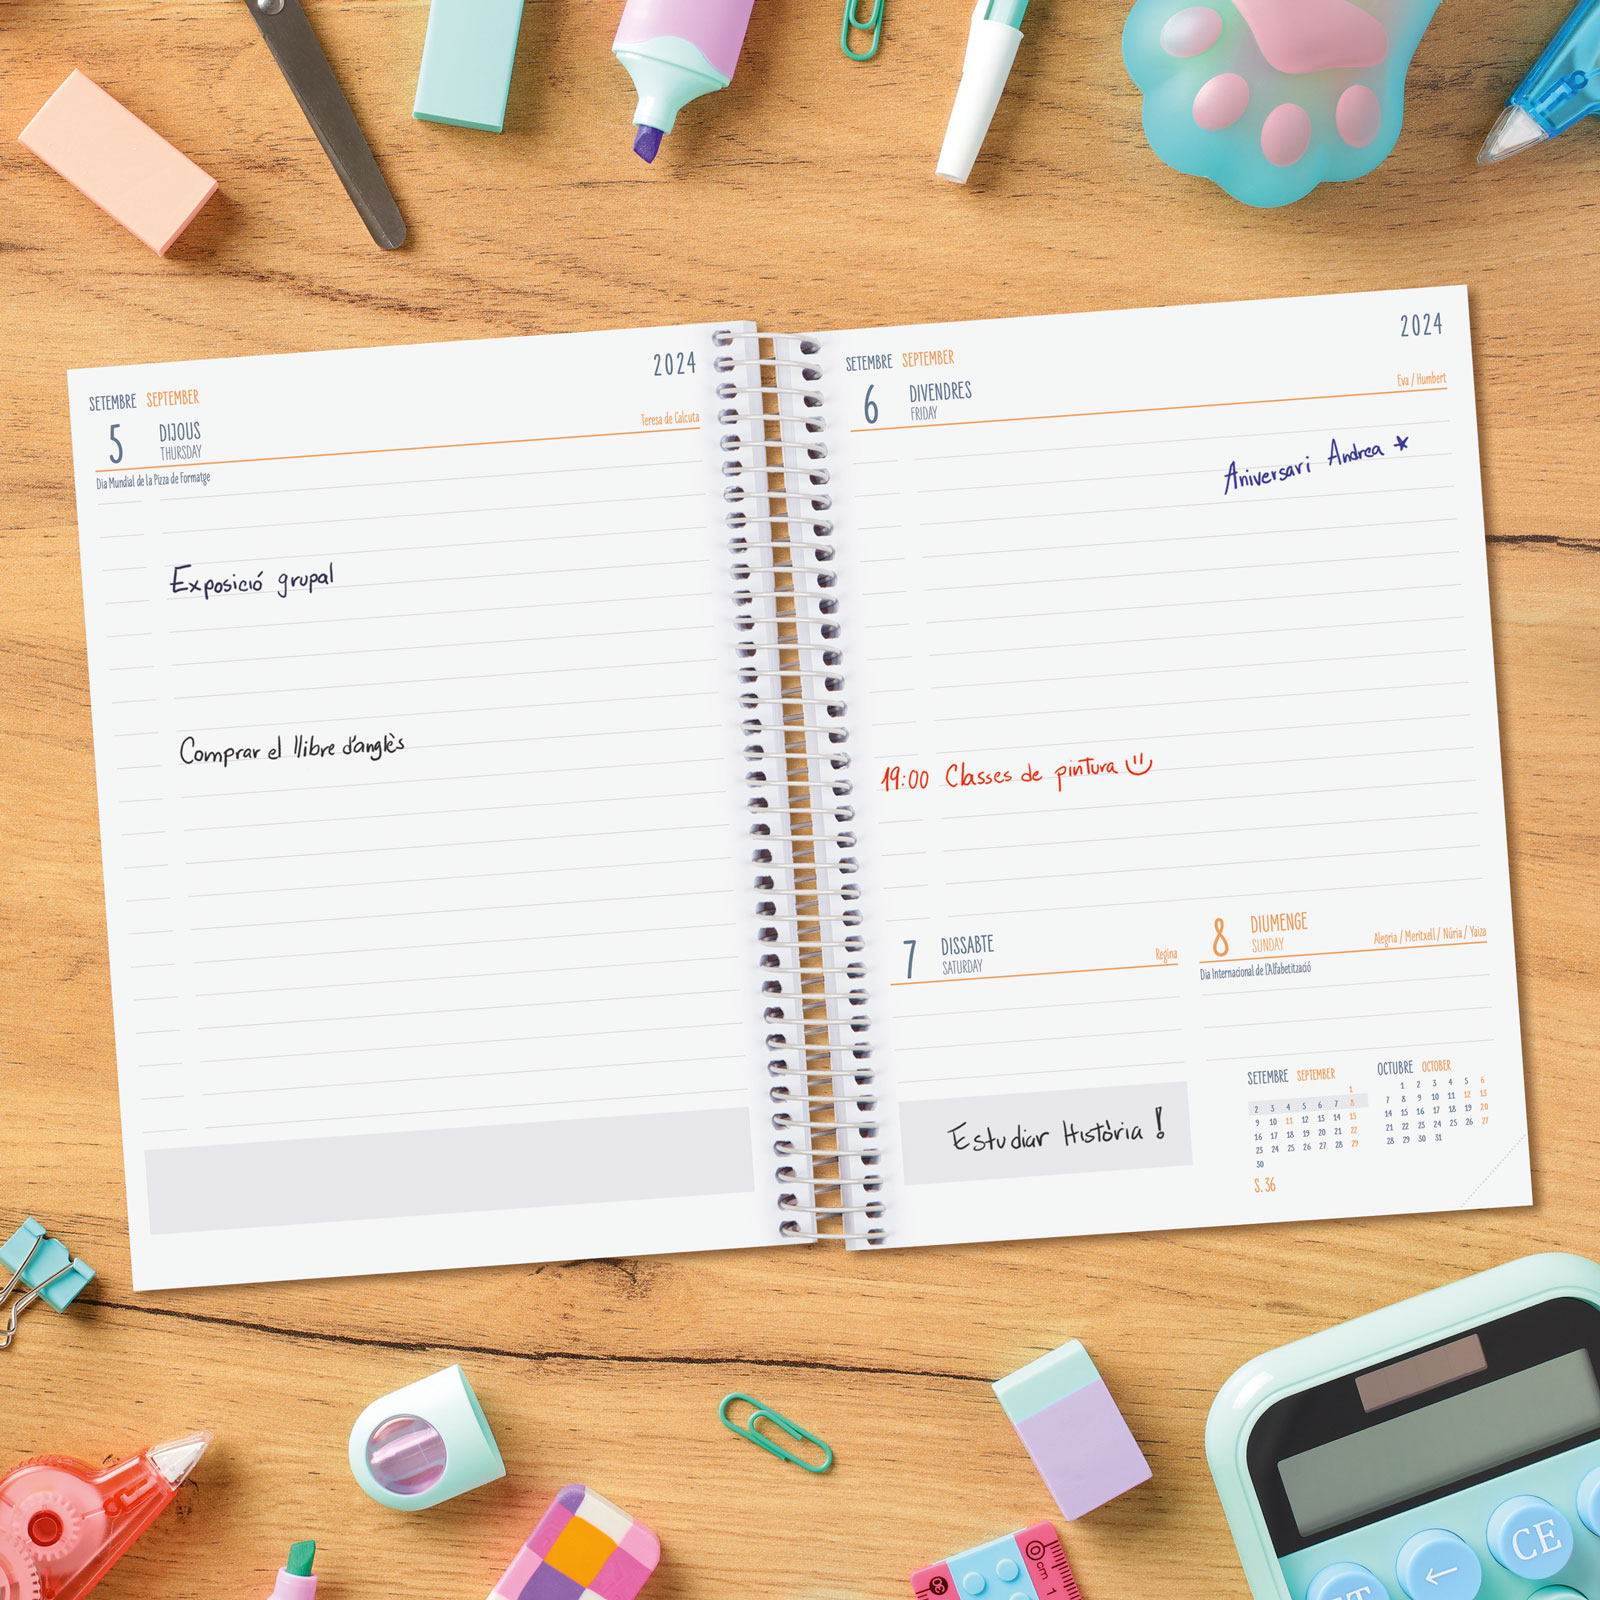 2024
SETEMBRE SEPTEMBER
5 DIJOUS
THURSDAY
Teresa de Calcuta
Dia Mundial de la Pizza de Formatge
Exposició grupal
Comprar el llibre d'anglès
2024
SETEMBRE SEPTEMBER
6 DIVENDRES
FRIDAY
Eva / Humbert
Aniversari Andrea
19:00 Classes de pintura
7 DISSABTE
SATURDAY
Regina
8 DIUMENGE
SUNDAY
Alegria / Meritxell / Núria / Yaiza
Dia Internacional de l'Alfabetització
Estudiar Història !
SETEMBRE SEPTEMBER
1
2 3 4 5 6 7 8
9 10 11 12 13 14 15
16 17 18 19 20 21 22
23 24 25 26 27 28 29
30
S. 36
OCTUBRE OCTOBER
1 2 3 4 5 6
7 8 9 10 11 12 13
14 15 16 17 18 19 20
21 22 23 24 25 26 27
28 29 30 31
CE
←
0 cm 1